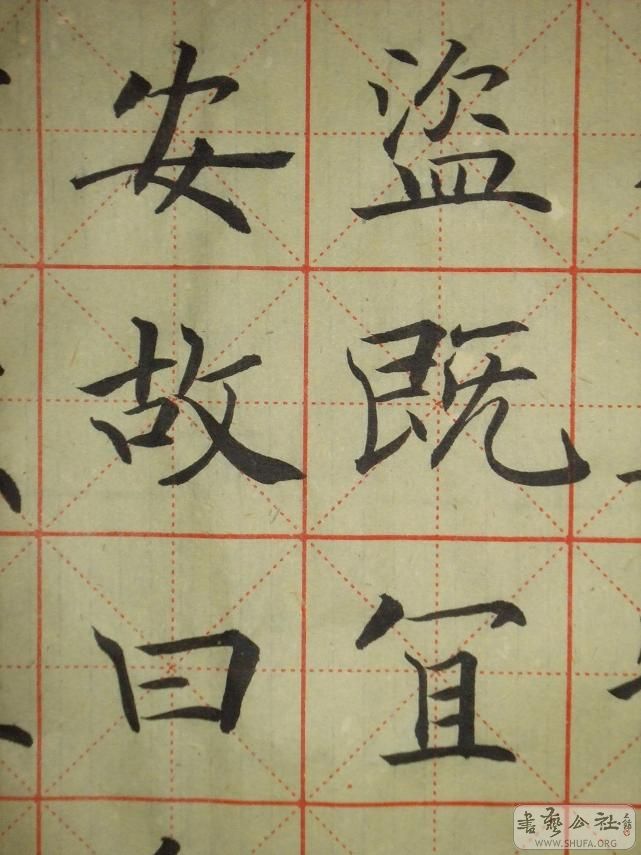 盗既冝
安故曰
書藝公社
WWW.SHUFA.ORG